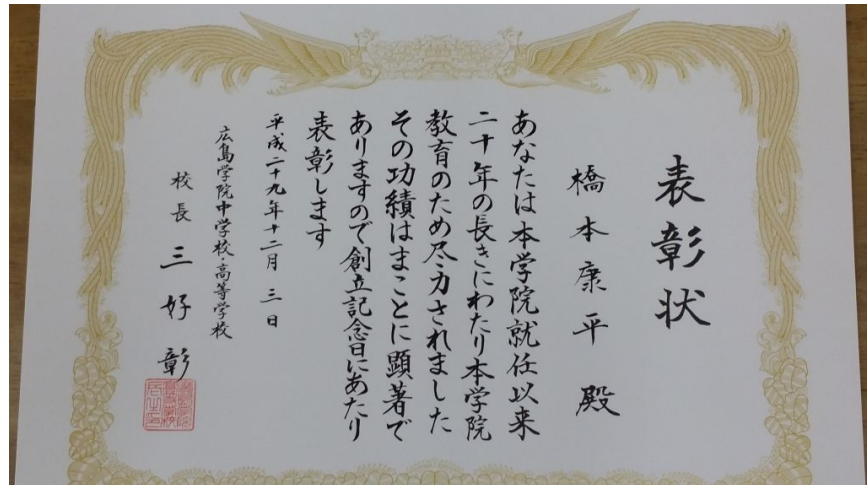 表彰状
橋本康平殿
あなたは本学院就任以来
二十年の長きにわたり本学院
教育のため尽力されました
その功績はまことに顕著で
ありますので創立記念日にあたり
表彰します
平成二十九年十二月三日
広島学院中学校・高等学校
校長三好彰